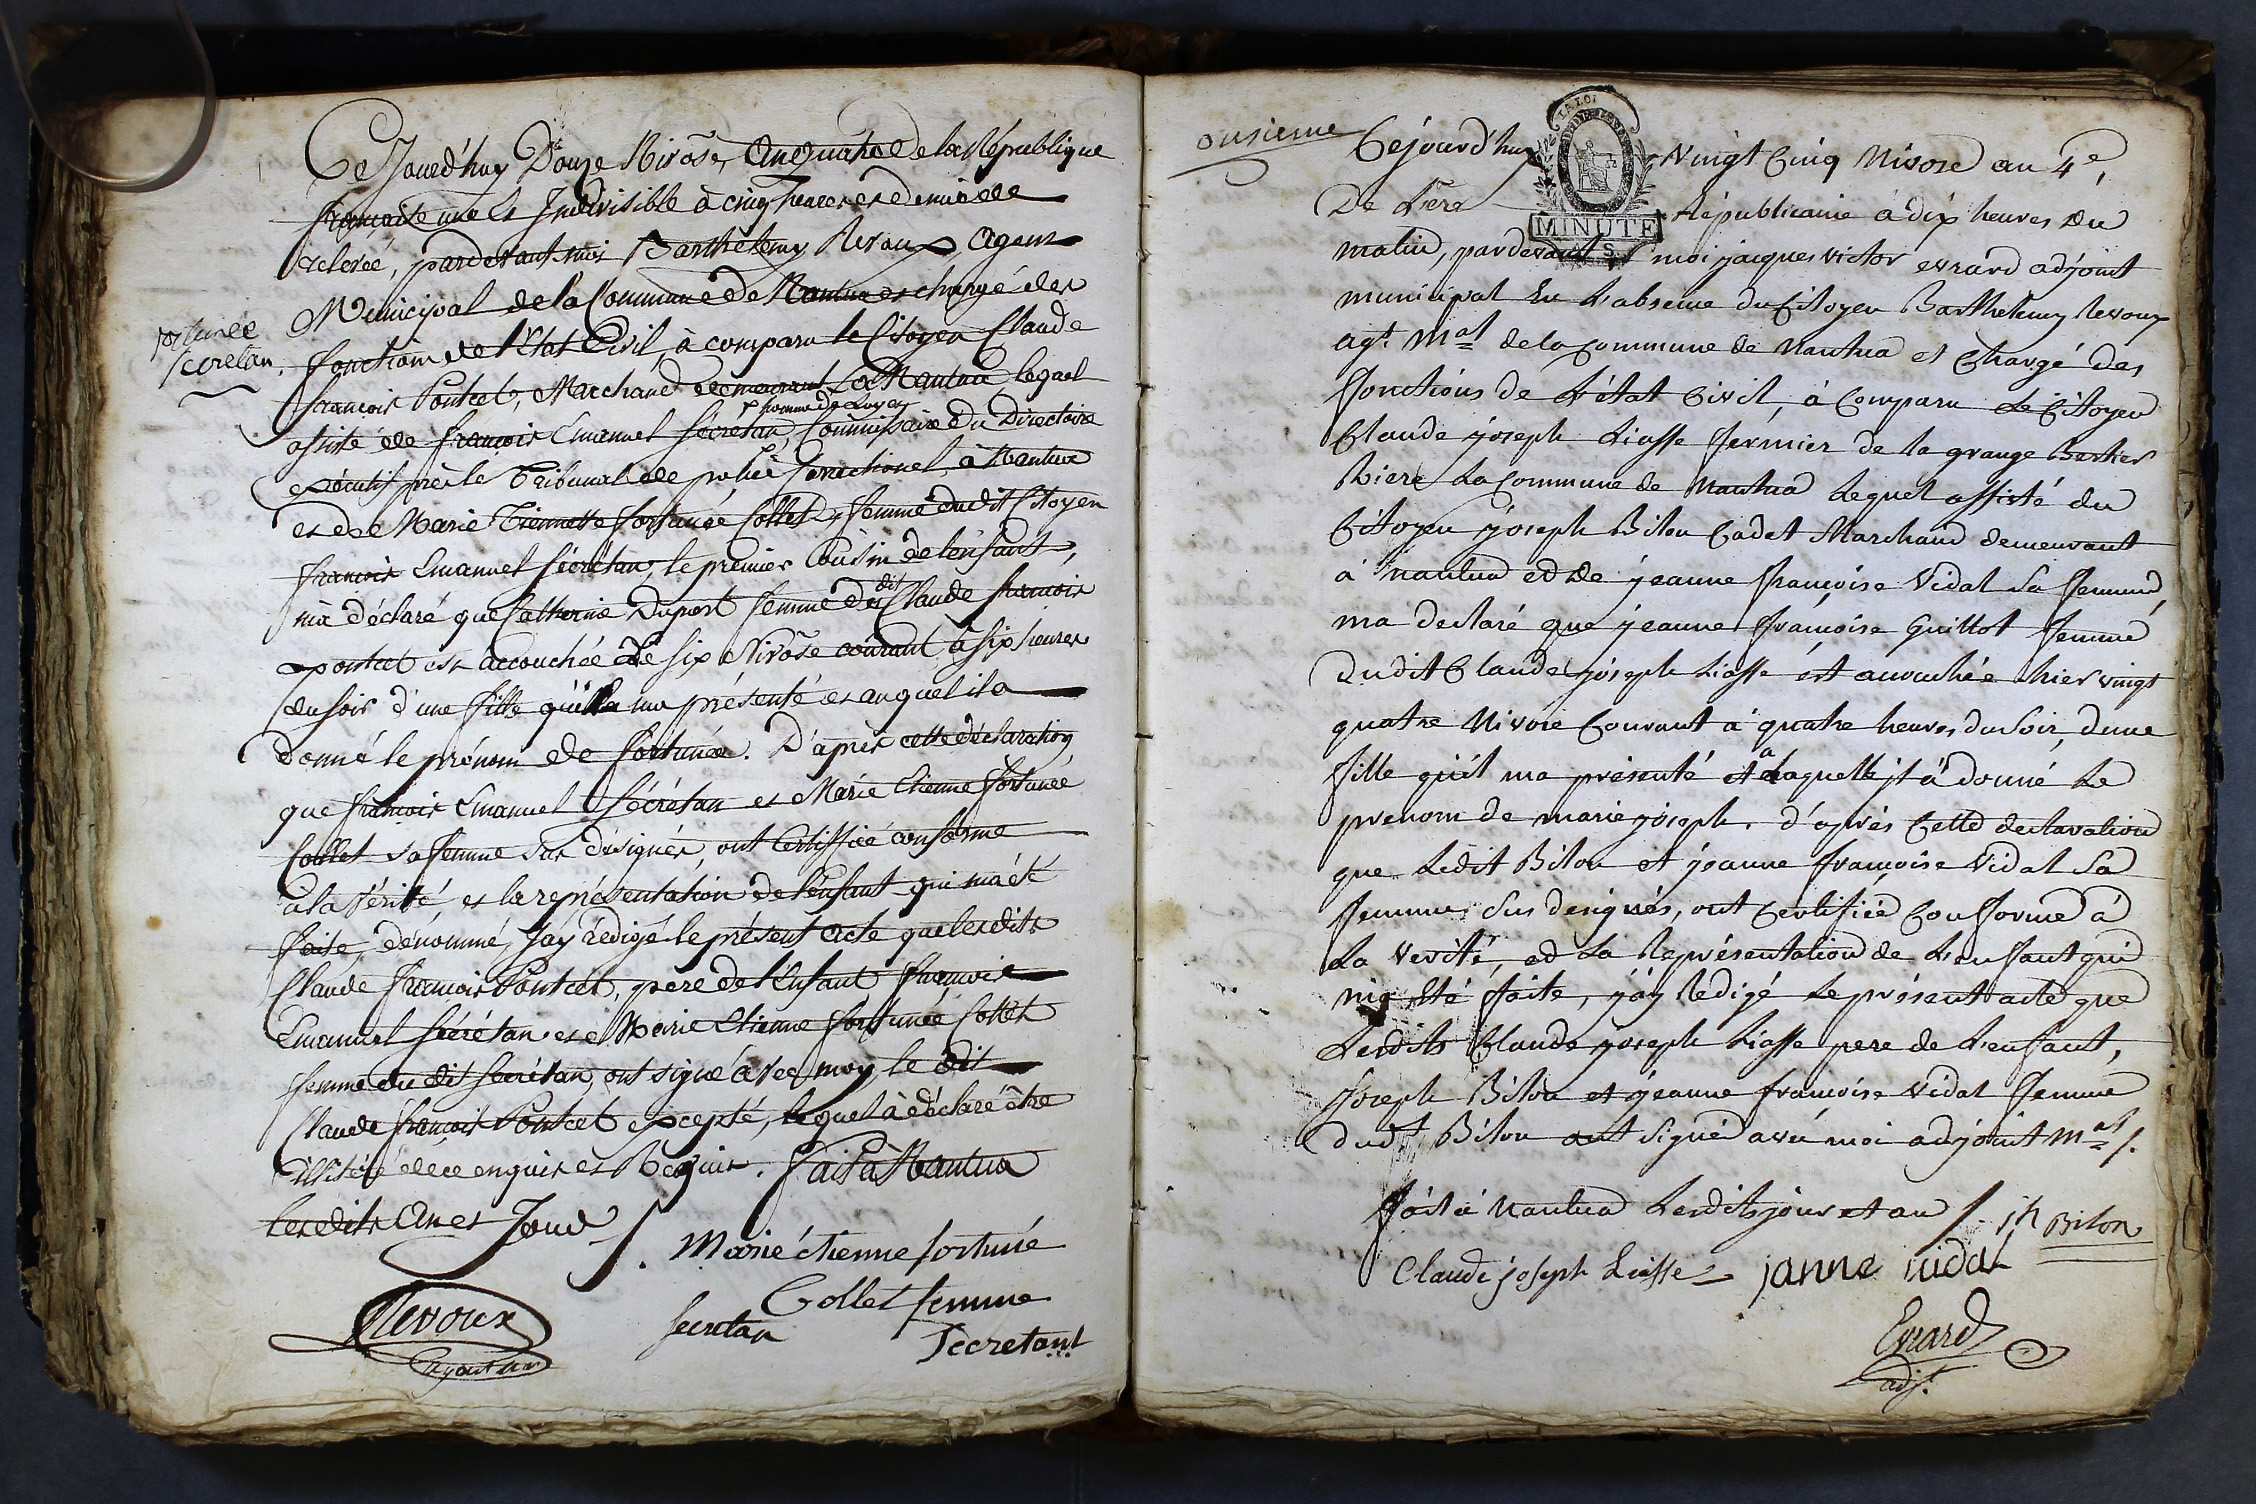 Ce Jourd'huy Douze Nivôse, An Quatre de la République
française une et Indivisible à cinq heures et demie de
relevée, pardevant moi Barthelemy Revoux, Agent
Municipal de la Commune de Nantua et chargé des
fortunée
secretan.
fonctions de l'Etat Civil, à comparu le Citoyen Claude
françois Pontcet, Marchand demeurant à Nantua lequel
homme de Loyer
assisté de françois Emanuel Secretan, Commissaire du Directoire
exécutif près le Tribunal de police Correctionel à Nantua
et de Marie Etiennette fortunée Collet, femme dudit Citoyen
françois Emanuel Sécrétan, le premier Cousin de l'enfant,
m'à déclaré que Catherine Duport femme du dit Claude françois
pontcet est accouchée le six Nivôse courant à six heures
du soir d'une fille qu'il a ma présenté et auquel il a
donné le prénom de fortunée. D'après cette déclaration
que françois Emanuel Sécrétan et Marie Etienne fortunée
Collet sa femme sus désignés, ont Certiffié conforme
à la Vérité et la représentation de l'enfant qui m'a été
faite, dénommé, J'ay rédigé le présent Acte que lesdits
Claude françois Pontcet, pere de l'Enfant françois
Emanuel Sécrétan et Marie Etienne fortunée Collet
femme du dit Secrétan, ont signé avec moy, le dit
Claude françois Pontcet excepté, lequel à déclaré être
illitéré de ce enquis et Requis. fait à Nantua
lesdits An et Jour
Marie étienne fortunée
Collet femme
Secretan
Secretant
Revoux
Agent m.al
onsieme
Cejourd'huy Vingt Cinq Nivose an 4e,
LA LOI
MINUTE
S.
De L'ere Républicaine à dix heures du
matin, pardevant moi jacques victor evrard adjoint
municipal En L'absence du Citoyen Barthelemy Revoux
agt. Mal de la Commune de Nantua et Chargé des
fonctions de L'état Civil, à Comparu Le Citoyen
Claude joseph Liasse fermier de la grange Bertier
Riere La Commune de Nantua Lequel assisté du
Citoyen joseph Bilon Cadet Marchand demeurant
à nantua et de jeanne françoise Vidal Sa femme,
ma declaré que jeanne françoise Guillot femme
Dudit Claude joseph Liasse est accouchée hier vingt
quatre Nivose Courant à quatre heures du soir, d'une
fille qu'il ma présenté et a laquelle il à donné Le
prenom de marie joseph. d'après Cette declaration
que Ledit Bilon et jeanne françoise Vidal Sa
femme, Sus designés, ont Certifié Conforme à
La Verité, et La Représentation de L'enfant qui
m'a Eté faite, j'ay Redigé Le présent acte que
Lesdits Claude joseph Liasse pere de L'enfant,
joseph Bilon et jeanne françoise Vidal femme
dudt. Bilon ont Signé avec moi adjoint mal.
fait à Nantua Lesdits jour et an
jh Bilon
Claude joseph Liasse
janne vidal
Evrard
adj.t